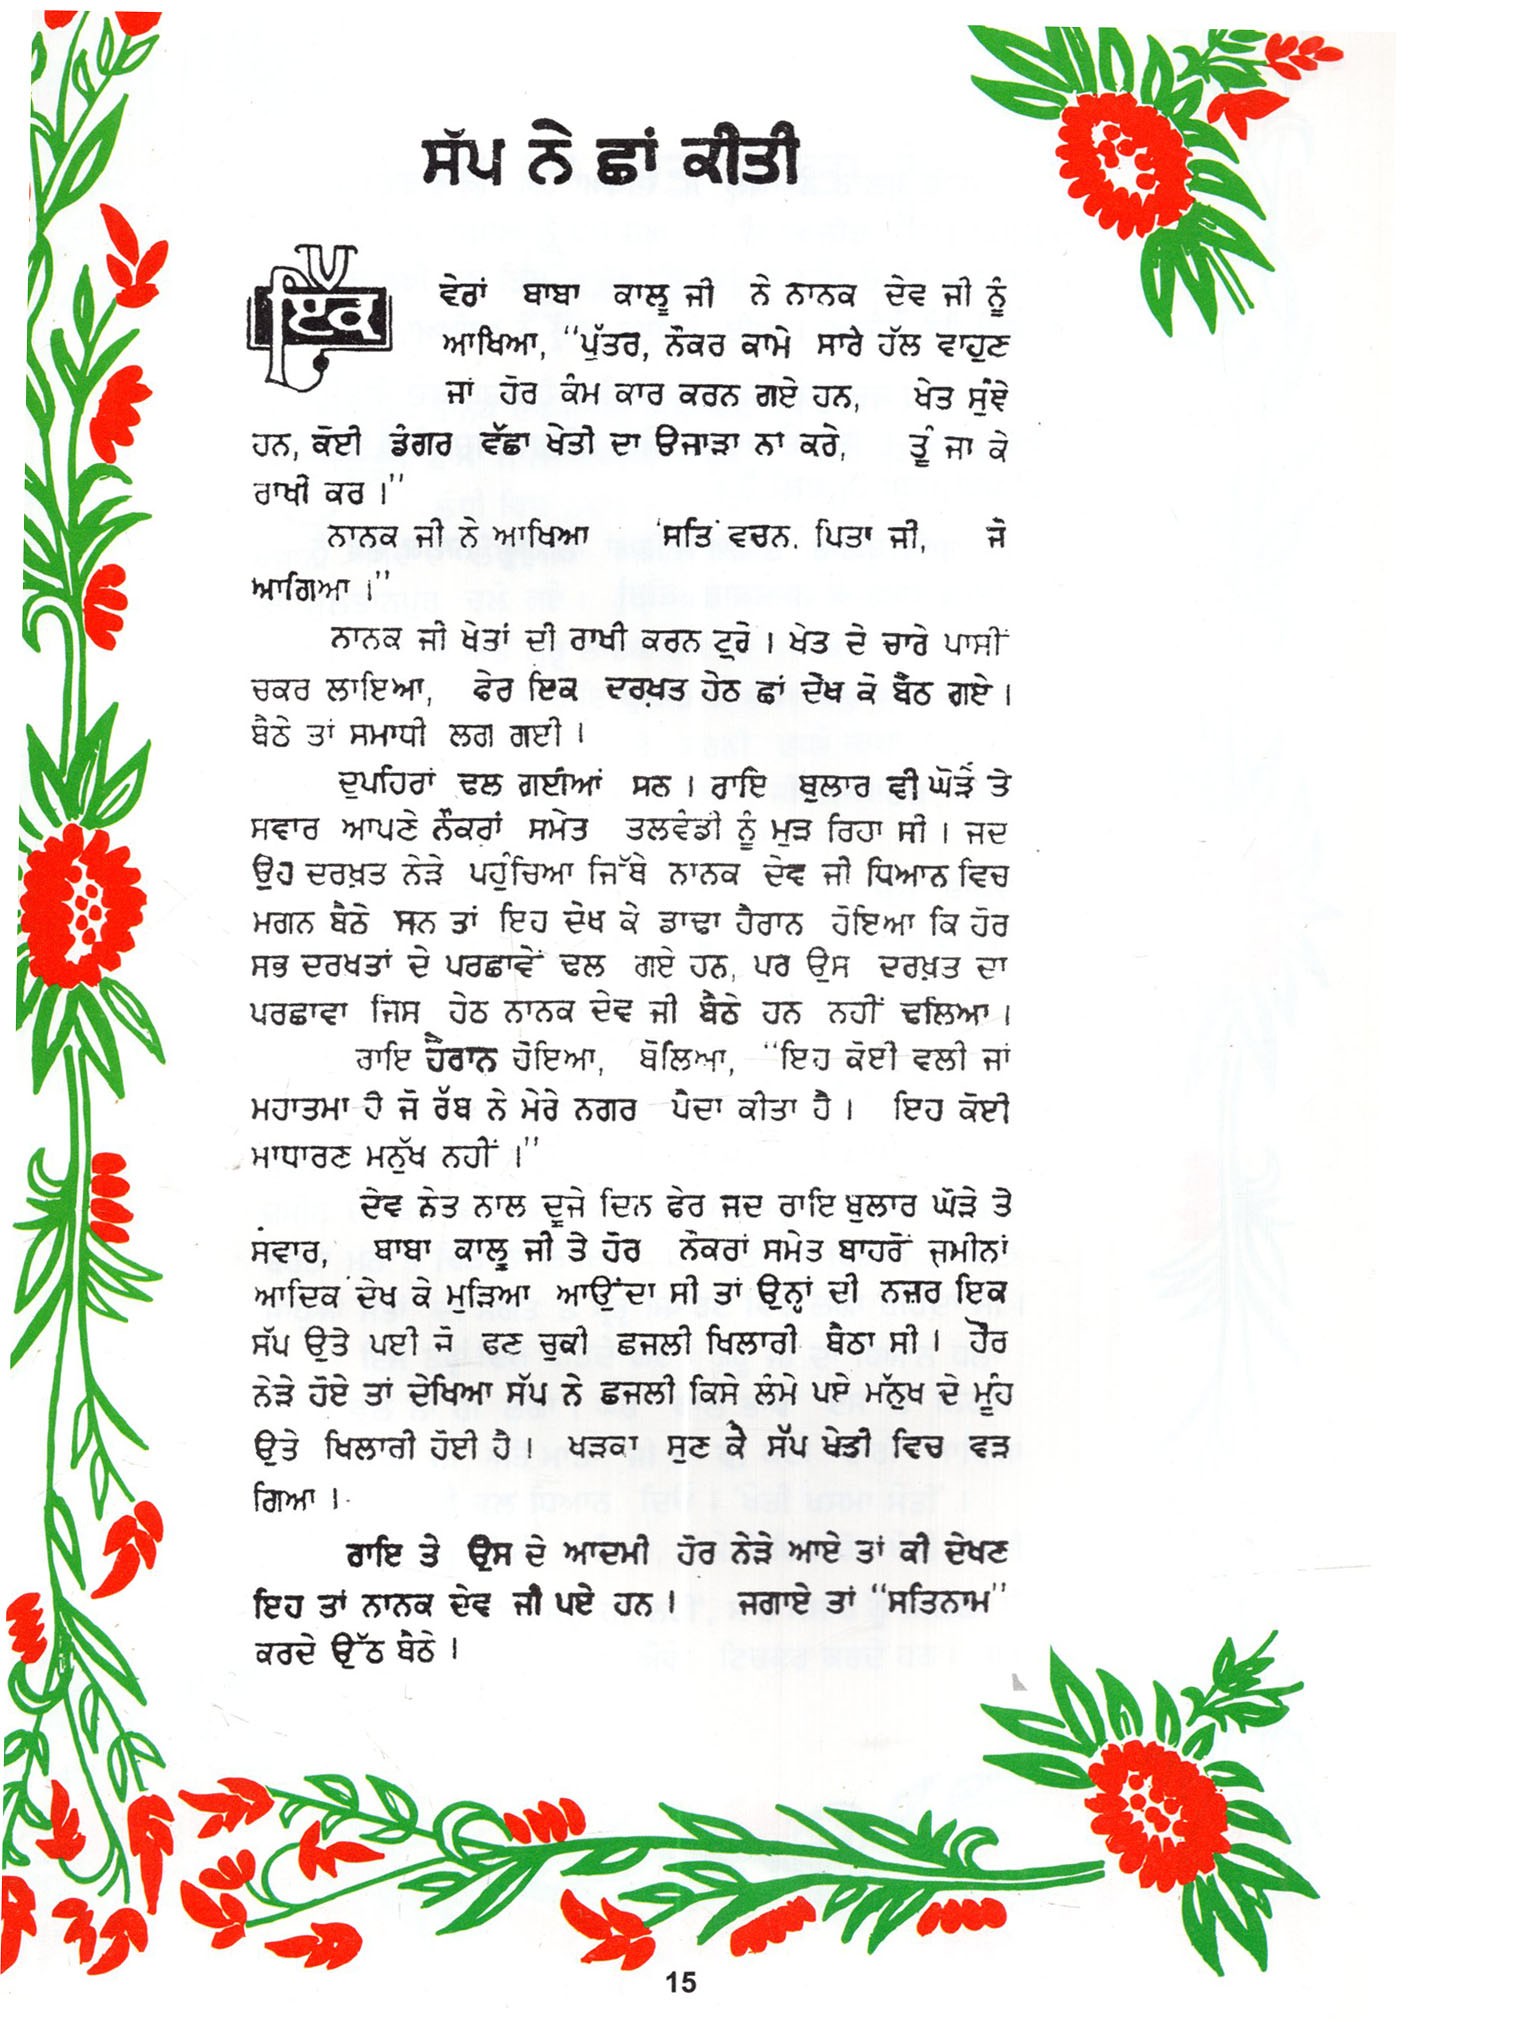 ਸੱਪ ਨੇ ਛਾਂ ਕੀਤੀ
ਇਕ ਵੇਰਾਂ ਬਾਬਾ ਕਾਲੂ ਜੀ ਨੇ ਨਾਨਕ ਦੇਵ ਜੀ ਨੂੰ
ਆਖਿਆ, “ਪੁੱਤਰ, ਨੌਕਰ ਕਾਮੇ ਸਾਰੇ ਹੱਲ ਵਾਹੁਣ
ਜਾਂ ਹੋਰ ਕੰਮ ਕਾਰ ਕਰਨ ਗਏ ਹਨ, ਖੇਤ ਸੁੰਞੇ
ਹਨ, ਕੋਈ ਡੰਗਰ ਵੱਛਾ ਖੇਤੀ ਦਾ ਉਜਾੜਾ ਨਾ ਕਰੇ, ਤੂੰ ਜਾ ਕੇ
ਰਾਖੀ ਕਰ ।”
ਨਾਨਕ ਜੀ ਨੇ ਆਖਿਆ ‘ਸਤਿ ਵਚਨ. ਪਿਤਾ ਜੀ, ਜੋ
ਆਗਿਆ ।”
ਨਾਨਕ ਜੀ ਖੇਤਾਂ ਦੀ ਰਾਖੀ ਕਰਨ ਟੁਰੇ । ਖੇਤ ਦੇ ਚਾਰੇ ਪਾਸੀਂ
ਚਕਰ ਲਾਇਆ, ਫੇਰ ਇਕ ਦਰਖ਼ਤ ਹੇਠ ਛਾਂ ਦੇਖ ਕੇ ਬੈਠ ਗਏ ।
ਬੈਠੇ ਤਾਂ ਸਮਾਧੀ ਲਗ ਗਈ ।
ਦੁਪਹਿਰਾਂ ਢਲ ਗਈਆਂ ਸਨ । ਰਾਇ ਬੁਲਾਰ ਵੀ ਘੋੜੇ ਤੇ
ਸਵਾਰ ਆਪਣੇ ਨੌਕਰਾਂ ਸਮੇਤ ਤਲਵੰਡੀ ਨੂੰ ਮੁੜ ਰਿਹਾ ਸੀ । ਜਦ
ਉਹ ਦਰਖ਼ਤ ਨੇੜੇ ਪਹੁੰਚਿਆ ਜਿੱਥੇ ਨਾਨਕ ਦੇਵ ਜੀ ਧਿਆਨ ਵਿਚ
ਮਗਨ ਬੈਠੇ ਸਨ ਤਾਂ ਇਹ ਦੇਖ ਕੇ ਡਾਢਾ ਹੈਰਾਨ ਹੋਇਆ ਕਿ ਹੋਰ
ਸਭ ਦਰਖਤਾਂ ਦੇ ਪਰਛਾਵੇਂ ਢਲ ਗਏ ਹਨ, ਪਰ ਉਸ ਦਰਖ਼ਤ ਦਾ
ਪਰਛਾਵਾ ਜਿਸ ਹੇਠ ਨਾਨਕ ਦੇਵ ਜੀ ਬੈਠੇ ਹਨ ਨਹੀਂ ਢਲਿਆ ।
ਰਾਇ ਹੈਰਾਨ ਹੋਇਆ, ਬੋਲਿਆ, “ਇਹ ਕੋਈ ਵਲੀ ਜਾਂ
ਮਹਾਤਮਾ ਹੈ ਜੋ ਰੱਬ ਨੇ ਮੇਰੇ ਨਗਰ ਪੈਦਾ ਕੀਤਾ ਹੈ । ਇਹ ਕੋਈ
ਸਾਧਾਰਣ ਮਨੁੱਖ ਨਹੀਂ ।”
ਦੇਵ ਨੇਤ ਨਾਲ ਦੂਜੇ ਦਿਨ ਫੇਰ ਜਦ ਰਾਇ ਬੁਲਾਰ ਘੋੜੇ ਤੇ
ਸਵਾਰ, ਬਾਬਾ ਕਾਲੂ ਜੀ ਤੇ ਹੋਰ ਨੌਕਰਾਂ ਸਮੇਤ ਬਾਹਰੋਂ ਜ਼ਮੀਨਾਂ
ਆਦਿਕ ਦੇਖ ਕੇ ਮੁੜਿਆ ਆਉਂਦਾ ਸੀ ਤਾਂ ਉਨ੍ਹਾਂ ਦੀ ਨਜ਼ਰ ਇਕ
ਸੱਪ ਉਤੇ ਪਈ ਜੋ ਫਣ ਚੁਕੀ ਛਜਲੀ ਖਿਲਾਰੀ ਬੈਠਾ ਸੀ । ਹੋਰ
ਨੇੜੇ ਹੋਏ ਤਾਂ ਦੇਖਿਆ ਸੱਪ ਨੇ ਛਜਲੀ ਕਿਸੇ ਲੰਮੇ ਪਏ ਮੱਨੁਖ ਦੇ ਮੂੰਹ
ਉਤੇ ਖਿਲਾਰੀ ਹੋਈ ਹੈ । ਖੜਕਾ ਸੁਣ ਕੇ ਸੱਪ ਖੇਤੀ ਵਿਚ ਵੜ
ਗਿਆ ।
ਰਾਇ ਤੇ ਉਸ ਦੇ ਆਦਮੀ ਹੋਰ ਨੇੜੇ ਆਏ ਤਾਂ ਕੀ ਦੇਖਣ
ਇਹ ਤਾਂ ਨਾਨਕ ਦੇਵ ਜੀ ਪਏ ਹਨ । ਜਗਾਏ ਤਾਂ “ਸਤਿਨਾਮ”
ਕਰਦੇ ਉੱਠ ਬੈਠੇ ।
15